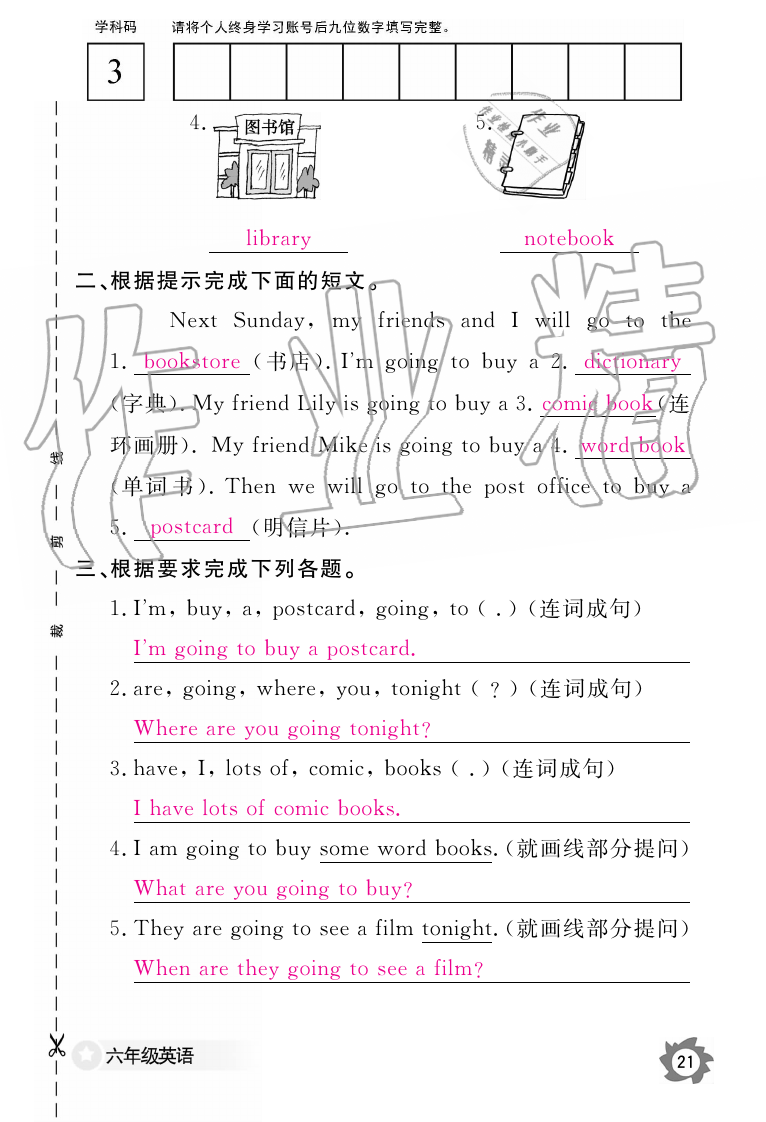 学科码 请将个人终身学习账号后九位数字填写完整。
3
4. 图书馆 5.
library notebook
二、根据提示完成下面的短文。
Next Sunday, my friends and I will go to the
1. bookstore (书店). I'm going to buy a 2. dictionary
(字典). My friend Lily is going to buy a 3. comic book (连
环画册). My friend Mike is going to buy a 4. word book
(单词书). Then we will go to the post office to buy a
5. postcard (明信片).
三、根据要求完成下列各题。
1. I'm, buy, a, postcard, going, to ( . ) (连词成句)
I'm going to buy a postcard.
2. are, going, where, you, tonight ( ? ) (连词成句)
Where are you going tonight?
3. have, I, lots of, comic, books ( . ) (连词成句)
I have lots of comic books.
4. I am going to buy some word books. (就画线部分提问)
What are you going to buy?
5. They are going to see a film tonight. (就画线部分提问)
When are they going to see a film?
线
剪
裁
六年级英语 21
作业精